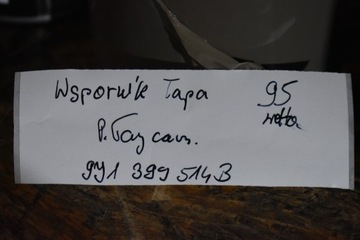 Wspornik Łapa 95
netto
P. Tay cam.
9Y1 399 514B